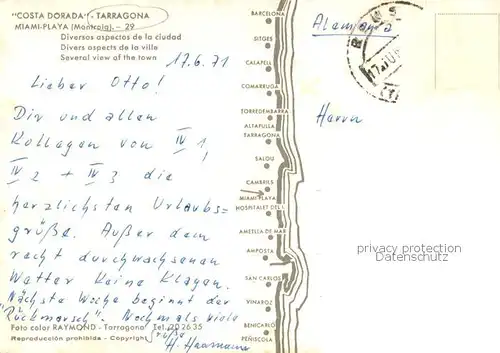 "COSTA DORADA" - TARRAGONA
MIAMI-PLAYA (Montroig). - 29
Diversos aspectos de la ciudad
Divers aspects de la ville
Several view of the town
17.6.71
Lieber Otto!
Dir und allen
Kollegen von IV 1,
IV 2 + IV 3 die
herzlichsten Urlaubs=
grüße. Außer dem
recht durchwachsenen
Wetter keine Klagen.
Nächste Woche beginnt der
"Rückmarsch". Nochmals viele
Grüße
H. Haarmann
Foto color RAYMOND - Tarragona Tel. 20 26 35
Reproducción prohibida - Copyright
BARCELONA
SITGES
CALAFELL
COMARRUGA
TORREDEMBARRA
ALTAFULLA
TARRAGONA
SALOU
CAMBRILS
MIAMI-PLAYA
HOSPITALET DEL I.
AMETLLA DE MAR
AMPOSTA
SAN CARLOS
VINAROZ
BENICARLO
PEÑISCOLA
Alemania
17 JUN
Herrn
privacy protection
Datenschutz